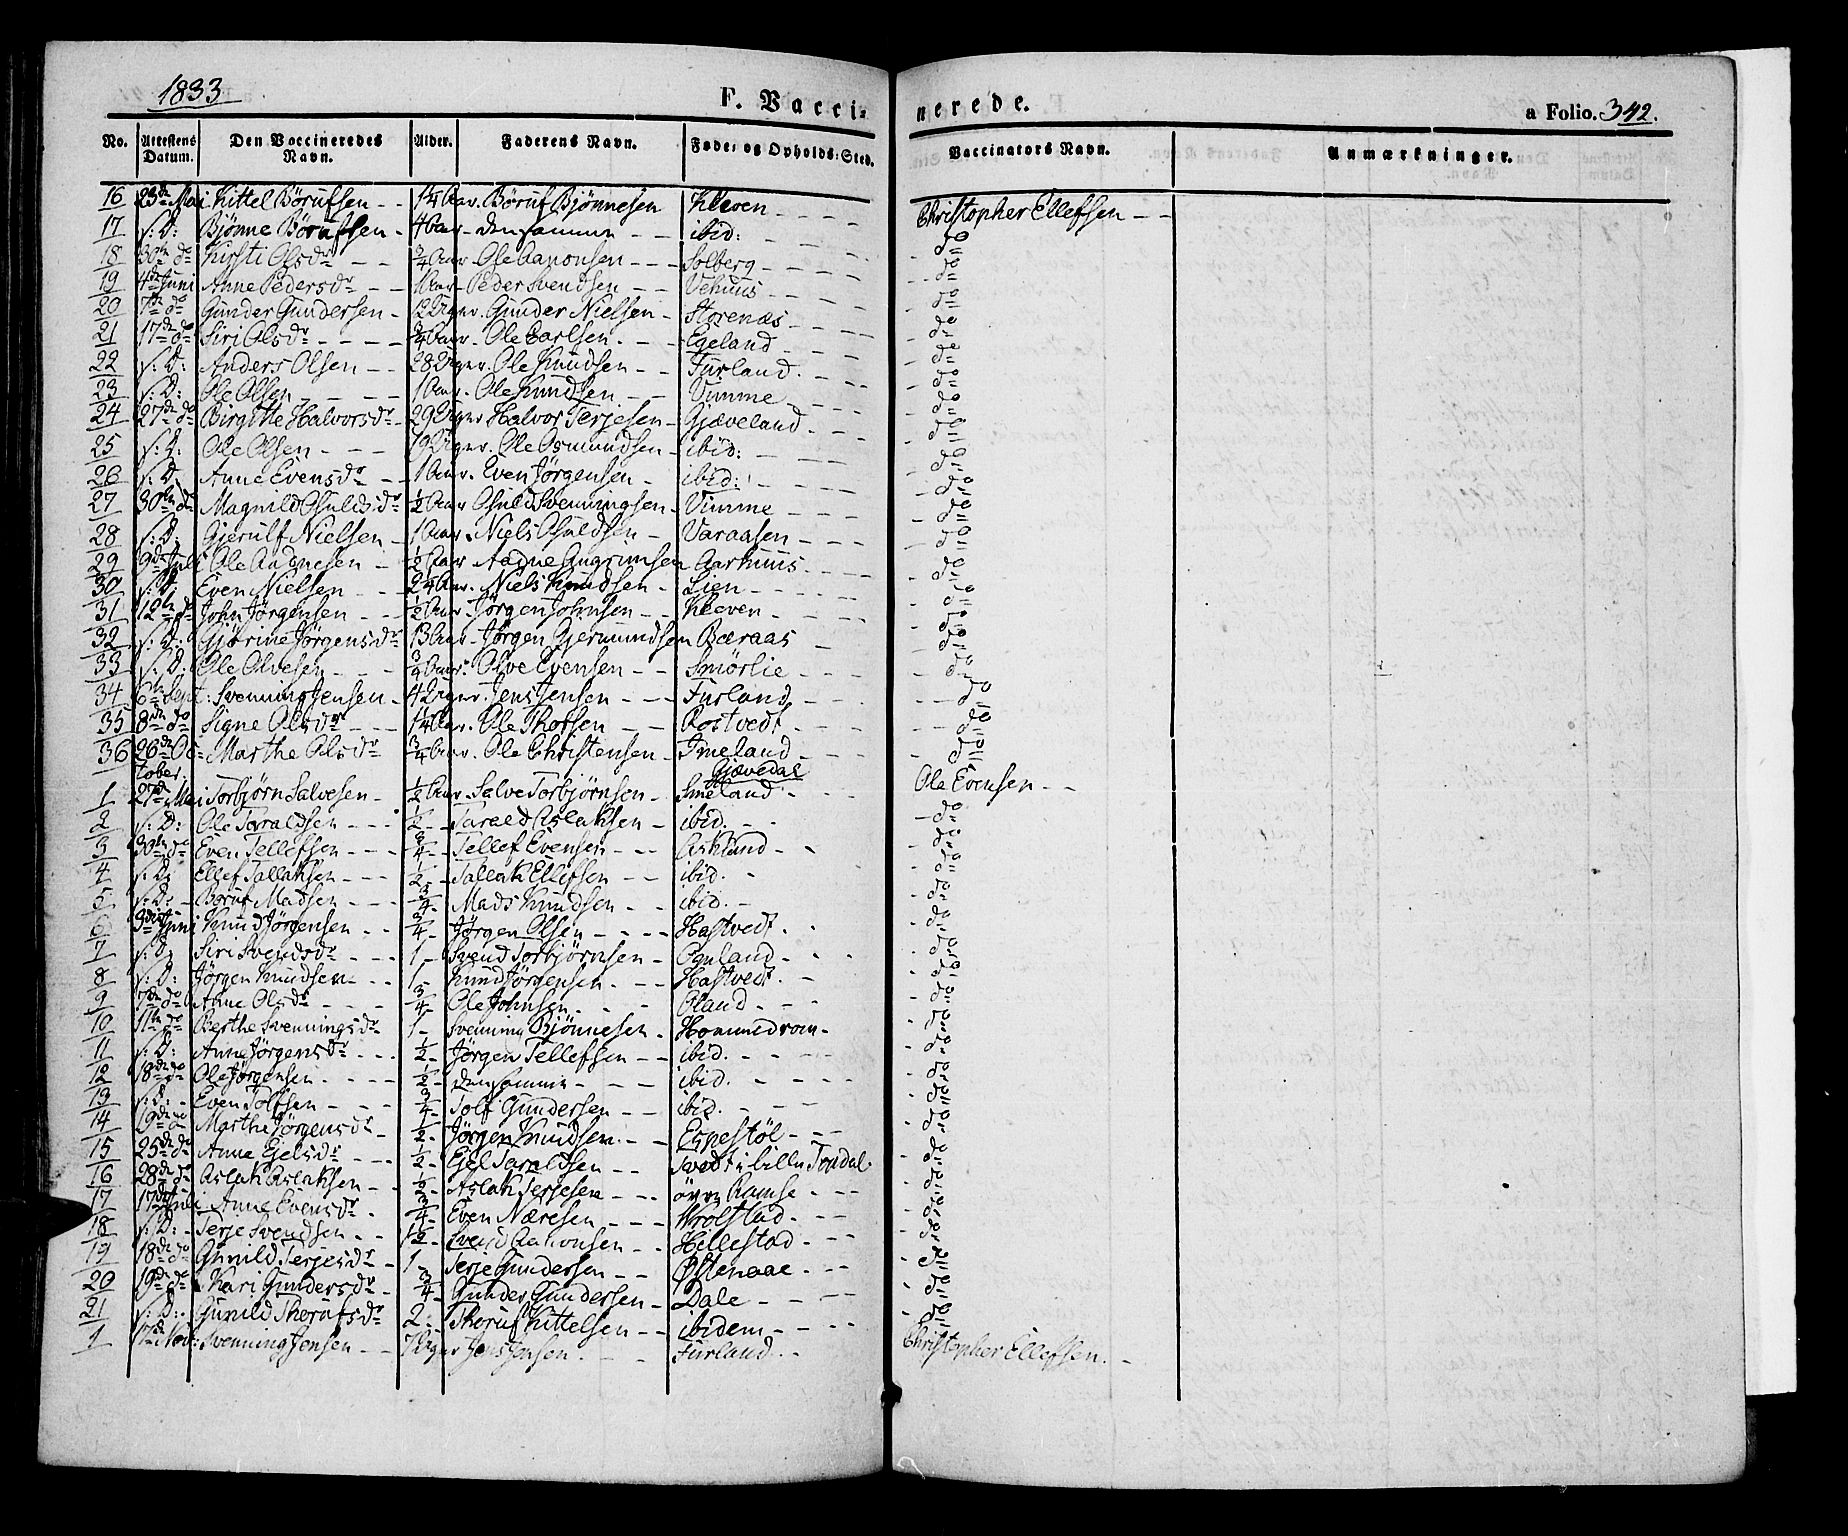 1833
F. Vacci-
nerede.
a Folio. 342.
No. Attestens Datum. Den Vaccineredes Navn. Alder. Faderens Navn. Føde- og Opholds-Sted. Vaccinators Navn. Anmærkninger.
16 23de Mai Kittel Börufsen - - 1 1/4 Aar. Böruf Bjönnesen Kleven - - - - Christopher Ellefsen - -
17 s: D: Bjönne Börufsen - 4 Aar - densamme - - ibid: - - - - do
18 30te do Kirsti Olsdr - - 3/4 Aar Ole Aanonsen - - - Solberg - - - - do
19 4de Juni Anne Pedersdr - - 1 Aar - Peder Svendsen - - Vehuus - - - - do
20 7de do Gunder Gundersen - 12 Uger. Gunder Nielsen - Storenæs - - - do
21 17de do Siri Olsdr - - - - 3/4 Aar - Ole Carlsen - - - Egeland - - - do
22 s: D: Anders Olsen - - 28 Uger. Ole Knudsen - - Furland. - - - do
23 s: D: Ole Olsen - - - - 1 Aar. - Ole Knudsen - - Vimme - - - do
24 27de do Birgithe Halvorsdr - 29 Uger Halvor Terjesen - Gjæveland - - - do
25 s: D: Ole Olsen - - - 19 Uger. Ole Osmundsen - ibid: - - - do
26 s: D: Anne Evensdr - - 1 Aar. Even Jörgensen - ibid: - - - - do
27 30te do Magnild Osuldsdr 1/2 Aar Osuld Svenningsen - Vimme - - - do
28 s: D: Gjerulf Nielsen - 1 Aar. Niels Osuldsen - Varaasen - - - do
29 9de Juli Ole Aadnesen - 1/2 Aar Aadne Aagrimsen Aarhuus - - - do
30 s: D: Even Nielsen - - - 2 1/4 Aar. Niels Knudsen - Lien - - - - do
31 12te do John Jörgensen - - 1/2 Aar Jörgen Johnsen - - Kleven - - - do
32 s: D: Gjörine Jörgensdr 13 Aar - Jörgen Gjermundsen Bæraas - - do
33 s: D: Ole Olvesen - - 3/4 Aar. Olve Evensen - - Smörlie - - - do
34 6te Sept: Svenning Jensen - 42 Uger. Jens Jensen - - - Furland - - - do
35 8de do Signe Olsdr - - 1 1/4 Aar. Ole Thorsen - - Rostvedt - - - do
36 26de Oc= Marthe Olsdr 3/4 Aar. Ole Christensen - Imeland - - - do
tober.
Gjævedal
1 27de Mai Torbjörn Salvesen - 1/2 Aar - Salve Torbjörnsen - Smeland - - Ole Evensen - -
2 s: D: Ole Taraldsen - - - 1/2 - - Tarald Aslaksen - ibid. - - do
3 30te do Even Tellefsen - - - 3/4 - Tellef Evensen - - - Askland - - do
4 s: D: Ellef Tallaksen - - - 1/2 - - Tallak Ellefsen - - ibid. - do
5 s: D: - Böruf Madsen - - - 3/4 - Mads Knudsen - - ibid. - do
6 3die Juni Knud Jörgensen - - 3/4 - Jörgen Olsen - - - - Hastvedt - - do
7 s: D: Siri Svendsdr - - - 1 - Svend Torbjörnsen - - - do
8 s: D: Jörgen Knudsen - - - 1 Knud Jörgensen - - - Hastvedt - - do
9 7de do Anne Olsdr - - - 3/4 - Ole Johnsen - - - Öland - - - do
10 11te do Berthe Svenningsdr 1 - Svenning Bjönnesen - Hommedrom - do
11 s: D: Anne Jörgensdr - - - 1/2 - Jörgen Tellefsen - - ibid. - - - do
12 18de do Ole Jörgensen - - - - 1/2 - densamme - - - ibid. - - - do
13 s: D: - Even Tolfsen - - - 3/4 - Tolf Gundersen - - ibid. - - - do
14 19de do Marthe Jörgensdr - 1/2 - Jörgen Knudsen - - Espestöl - - - do
15 25de do Anne Ejelsdr - - - 1/2 - Ejel Taraldsen - - Tvedt i lille Tovdal. do
16 28de do Aslak Aslaksen - - 1/2 - Aslak Terjesen - - - övre Ramse - - - do
17 17de Juli Anne Evensdr - 3/4 - Even Næresen - - - Wrolstad. - - do
18 s: D: - Terje Svendsen - - 1 1/2 - Svend Aanonsen - - Hillestad - - - do
19 18de do Gunild Terjesdr - 1 - Terje Gundersen - - Østenaae - - do
20 19de do Kari Gundersdr - 3/4 - Gunder Gundersen - Dale - - - do
21 s: D: Gunild Thorufsdr 2 - Thoruf Kittelsen - - ibidem - - - do
1 17de Nov: Svenning Jensen - - 7 Uger Jens Jensen. - - Furland. - - Christopher Ellefsen. -